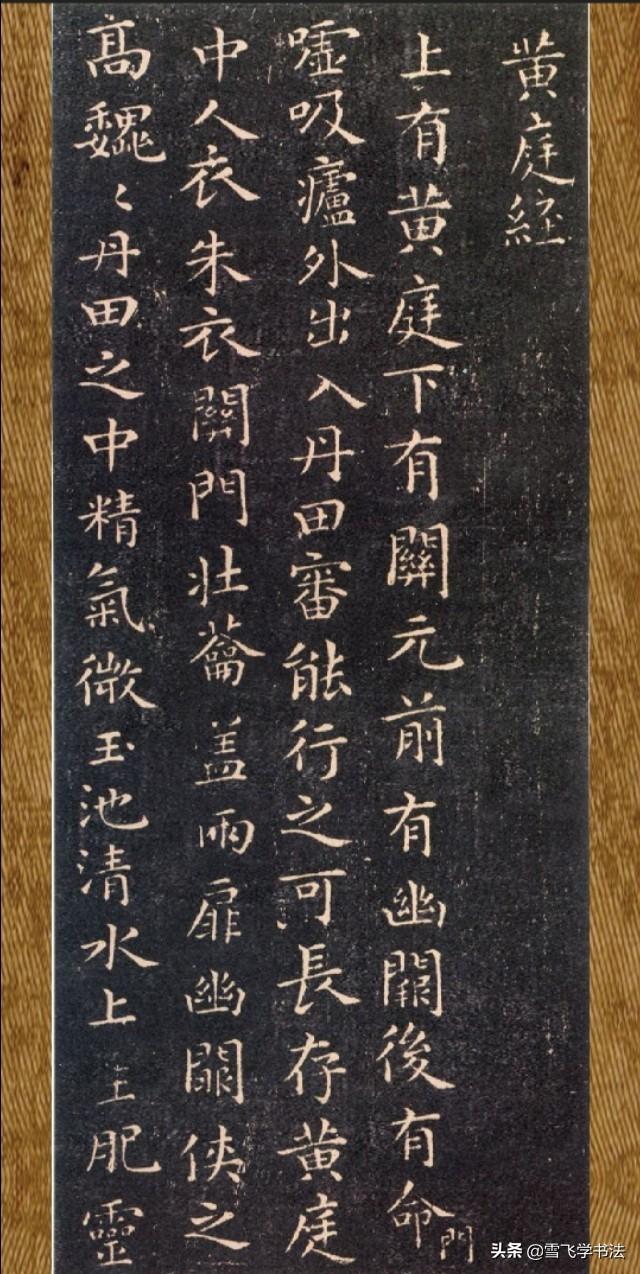 黄庭經
上有黄庭下有關元前有幽闕後有命門
嘘吸廬外出入丹田審能行之可長存黄庭
中人衣朱衣關門壯蘥盖兩扉幽闕侠之
高巍〻丹田之中精氣微玉池清水上生肥靈
头条 @雪飞学书法